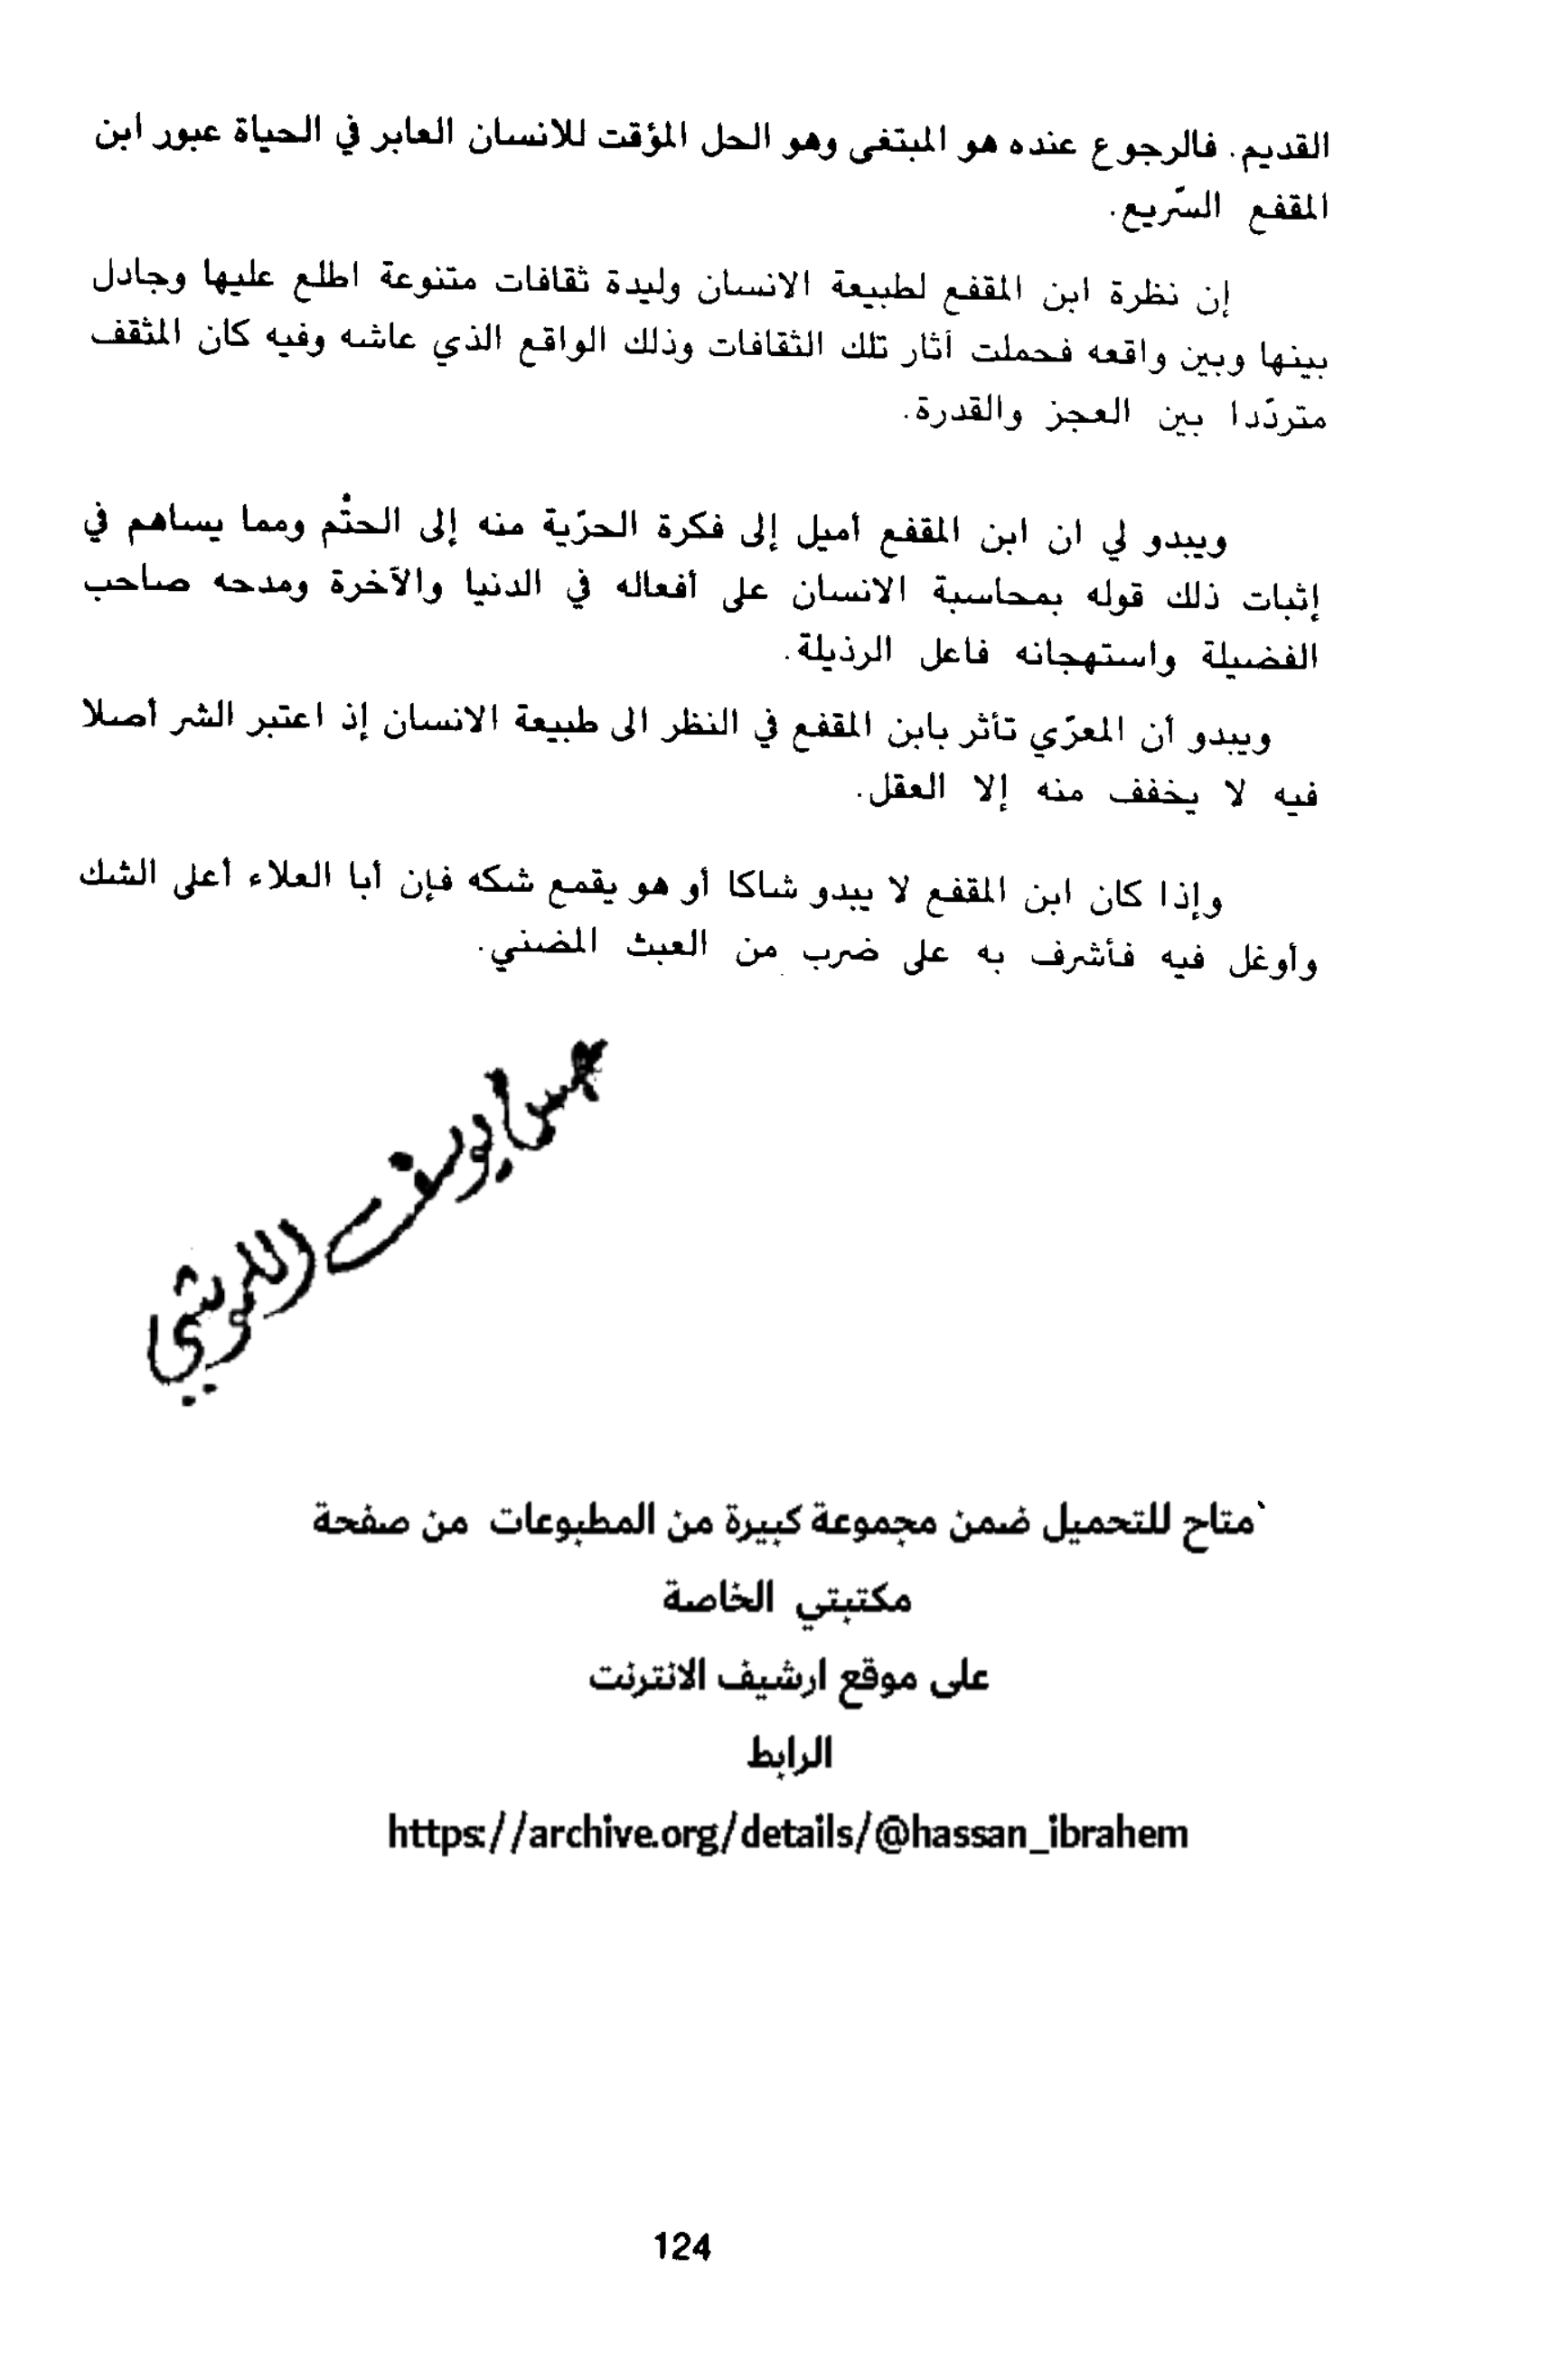 القديم. فالرجوع عنده هو المبتغى وهو الحل المؤقت للانسان العابر في الحياة عبور ابن
المقفع السّريع.
إن نظرة ابن المقفع لطبيعة الانسان وليدة ثقافات متنوعة اطلع عليها وجادل
بينها وبين واقعه فحملت آثار تلك الثقافات وذلك الواقع الذي عاشه وفيه كان المثقف
متردّدا بين العجز والقدرة.
ويبدو لي ان ابن المقفع أميل إلى فكرة الحرّية منه إلى الحتْم ومما يساهم في
إثبات ذلك قوله بمحاسبة الانسان على أفعاله في الدنيا والآخرة ومدحه صاحب
الفضيلة واستهجانه فاعل الرذيلة.
ويبدو أن المعرّي تأثر بابن المقفع في النظر الى طبيعة الانسان إذ اعتبر الشر أصلا
فيه لا يخفف منه إلا العقل.
وإذا كان ابن المقفع لا يبدو شاكا أو هو يقمع شكه فإن أبا العلاء أعلى الشك
وأوغل فيه فأشرف به على ضرب من العبث المضني.
يوسف
متاح للتحميل ضمن مجموعة كبيرة من المطبوعات من صفحة
مكتبتي الخاصة
على موقع ارشيف الانترنت
الرابط
https://archive.org/details/@hassan_ibrahem
124